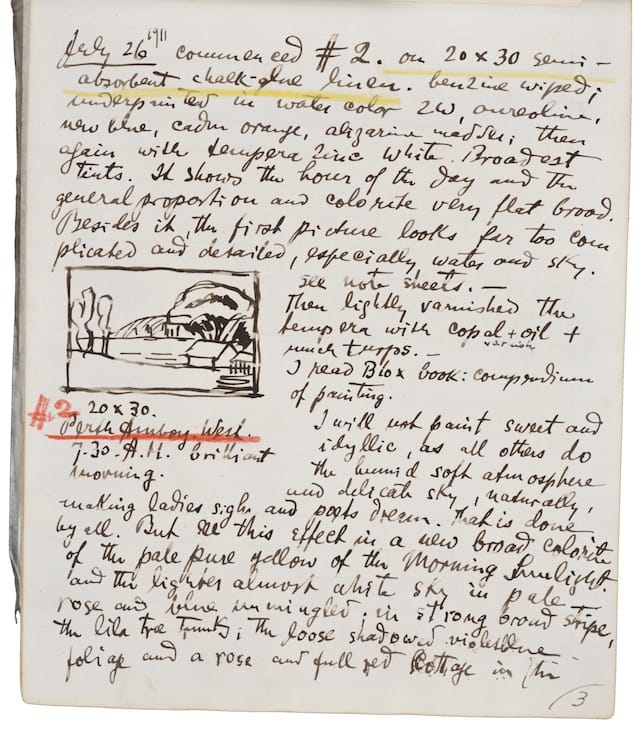 July 26 1911 commenced # 2. on 20 x 30 semi-
absorbent chalk-glue linen. benzine wiped;
underpainted in water color ZW, aureoline,
new blue, cadm orange, alizarine madder; then
again with tempera Zinc White. Broadest
tints. It shows the hour of the day and the
general proportion and colorite very flat broad.
Besides it, the first picture looks far too com
plicated and detailed, especially water and sky.
see note sheets. —
Then lightly varnished the
tempera with copal + oil +
varnish
much turps. —
I read Blox book: compendium
of painting.
#2
20 x 30.
Perth Amboy West
7.30. A.M. Brilliant
morning.
I will not paint sweet and
idyllic, as all others do
the humid soft atmosphere
and delicate sky, naturally,
making ladies sigh and poets dream. That is done
by all. But see this effect in a new broad colorite
of the pale pure yellow of the Morning Sunlight
and the lighter almost white sky in pale
rose and blue unmingled; in strong broad stripe,
the lila tree trunks; the loose shadowed violetblue
foliage and a rose and full red Cottage in the
3